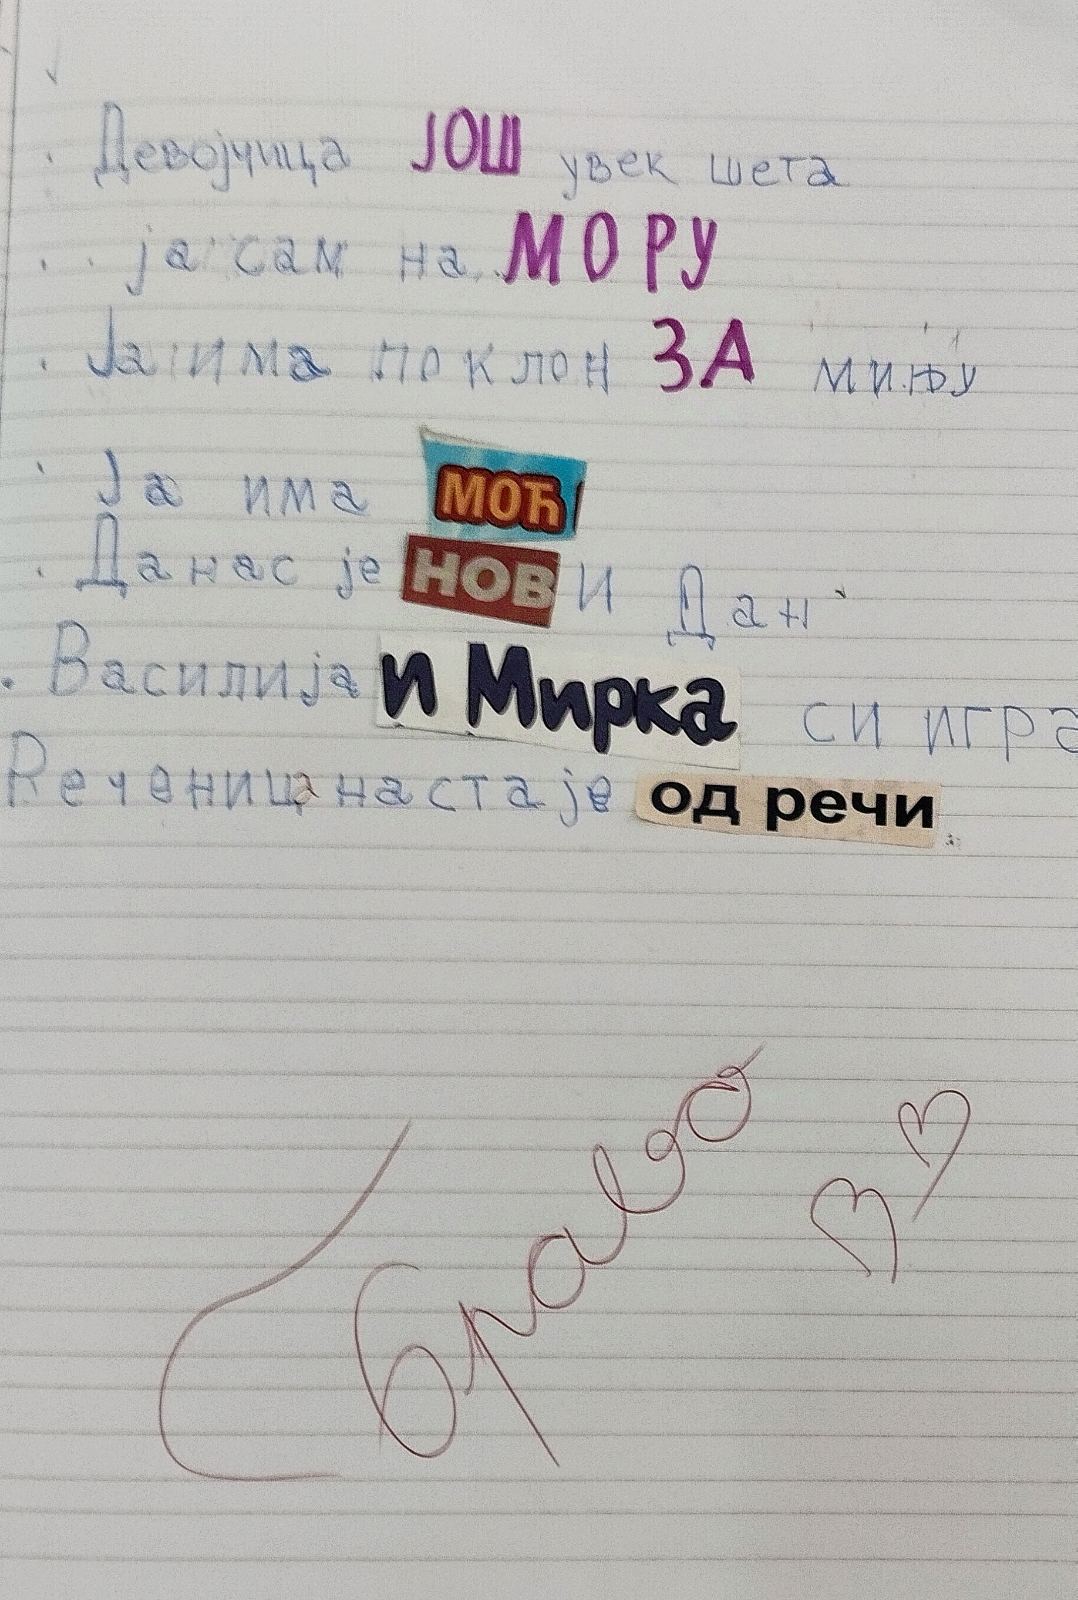 Девојчица ЈОШ увек шета
ја сам на МОРУ
Ја има поклон ЗА мињу
Ја има МОЋ
Данас је НОВИ Дан
Василија и Мирка си игра
Реченица настаје од речи
Браво